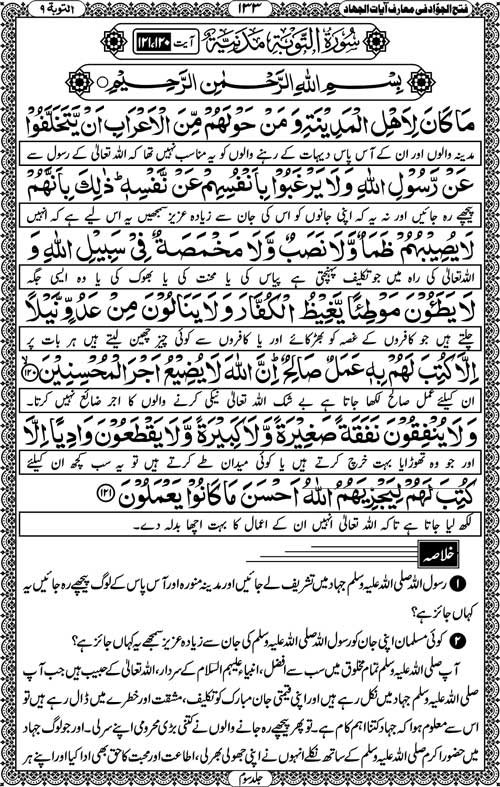 فتح الجوّاد فی معارف آیات الجهاد ۱۳۳ التوبة ۹
سُوْرَةُ التَّوْبَةِ مَدَنِيَّةٌ آیت ۱۲۰، ۱۲۱
بِسْمِ اللهِ الرَّحْمٰنِ الرَّحِيْمِ
مَا كَانَ لِاَهْلِ الْمَدِيْنَةِ وَ مَنْ حَوْلَهُمْ مِّنَ الْاَعْرَابِ اَنْ يَّتَخَلَّفُوْا
مدینہ والوں اور ان کے آس پاس دیہات کے رہنے والوں کو یہ مناسب نہیں تھا کہ اللہ تعالیٰ کے رسول سے
عَنْ رَّسُوْلِ اللهِ وَ لَا يَرْغَبُوْا بِاَنْفُسِهِمْ عَنْ نَّفْسِهٖ ذٰلِكَ بِاَنَّهُمْ
پیچھے رہ جائیں اور نہ یہ کہ اپنی جانوں کو اس کی جان سے زیادہ عزیز سمجھیں یہ اس لیے ہے کہ انہیں
لَا يُصِيْبُهُمْ ظَمَاٌ وَّ لَا نَصَبٌ وَّ لَا مَخْمَصَةٌ فِيْ سَبِيْلِ اللهِ وَ
اللہ تعالیٰ کی راہ میں جو تکلیف پہنچتی ہے پیاس کی یا محنت کی یا بھوک کی یا وہ ایسی جگہ
لَا يَطَـُٔوْنَ مَوْطِئًا يَّغِيْظُ الْكُفَّارَ وَ لَا يَنَالُوْنَ مِنْ عَدُوٍّ نَّيْلًا
چلتے ہیں جو کافروں کے غصہ کو بھڑکائے اور یا کافروں سے کوئی چیز چھین لیتے ہیں ہر بات پر
اِلَّا كُتِبَ لَهُمْ بِهٖ عَمَلٌ صَالِحٌ اِنَّ اللهَ لَا يُضِيْعُ اَجْرَ الْمُحْسِنِيْنَ ۱۲۰
ان کیلئے عمل صالح لکھا جاتا ہے بے شک اللہ تعالیٰ نیکی کرنے والوں کا اجر ضائع نہیں کرتا۔
وَ لَا يُنْفِقُوْنَ نَفَقَةً صَغِيْرَةً وَّ لَا كَبِيْرَةً وَّ لَا يَقْطَعُوْنَ وَادِيًا اِلَّا
اور جو وہ تھوڑا یا بہت خرچ کرتے ہیں یا کوئی میدان طے کرتے ہیں تو یہ سب کچھ ان کیلئے
كُتِبَ لَهُمْ لِيَجْزِيَهُمُ اللهُ اَحْسَنَ مَا كَانُوْا يَعْمَلُوْنَ ۱۲۱
لکھ لیا جاتا ہے تاکہ اللہ تعالیٰ انہیں ان کے اعمال کا بہت اچھا بدلہ دے۔
خلاصہ
۱ رسول اللہ صلی اللہ علیہ وسلم جہاد میں تشریف لے جائیں اور مدینہ منورہ اور آس پاس کے لوگ پیچھے رہ جائیں یہ
کہاں جائز ہے؟
۲ کوئی مسلمان اپنی جان کو رسول اللہ صلی اللہ علیہ وسلم کی جان سے زیادہ عزیز سمجھے یہ کہاں جائز ہے؟
آپ صلی اللہ علیہ وسلم تمام مخلوق میں سب سے افضل، انبیاء علیہم السلام کے سردار، اللہ تعالیٰ کے حبیب ہیں جب آپ
صلی اللہ علیہ وسلم جہاد میں نکل رہے ہیں اور اپنی قیمتی جان مبارک کو تکلیف، مشقت اور خطرے میں ڈال رہے ہیں تو
اس سے معلوم ہوا کہ جہاد کتنا اہم کام ہے۔ تو پھر پیچھے رہ جانے والوں نے کتنی بڑی محرومی اپنے سر لی۔ اور جو لوگ جہاد
میں حضور اکرم صلی اللہ علیہ وسلم کے ساتھ نکلے انہوں نے اپنی جھولی بھر لی، اطاعت اور محبت کا حق بھی ادا کیا اور اپنے ہر
جلد سوم